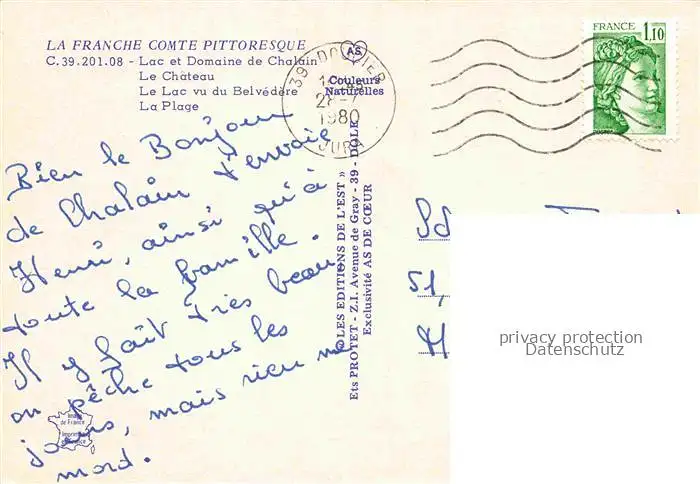 LA FRANCHE COMTE PITTORESQUE
C.39.201.08 - Lac et Domaine de Chalain
Le Château
Le Lac vu du Belvédère
La Plage
AS
Couleurs
Naturelles
39 DOUCIER
28-7
1980
JURA
FRANCE
1,10
Bien le Bonjour
de Chalain t'envoie
Henri, ainsi qu'à
toute la famille.
Il y fait très beau,
on pêche tous les
jours, mais rien ne
mord.
LES EDITIONS DE L'EST »
Ets PROTET - Z.I. Avenue de Gray - 39 - DOLE
Exclusivité AS DE CŒUR
Image
de France
51,
privacy protection
Datenschutz